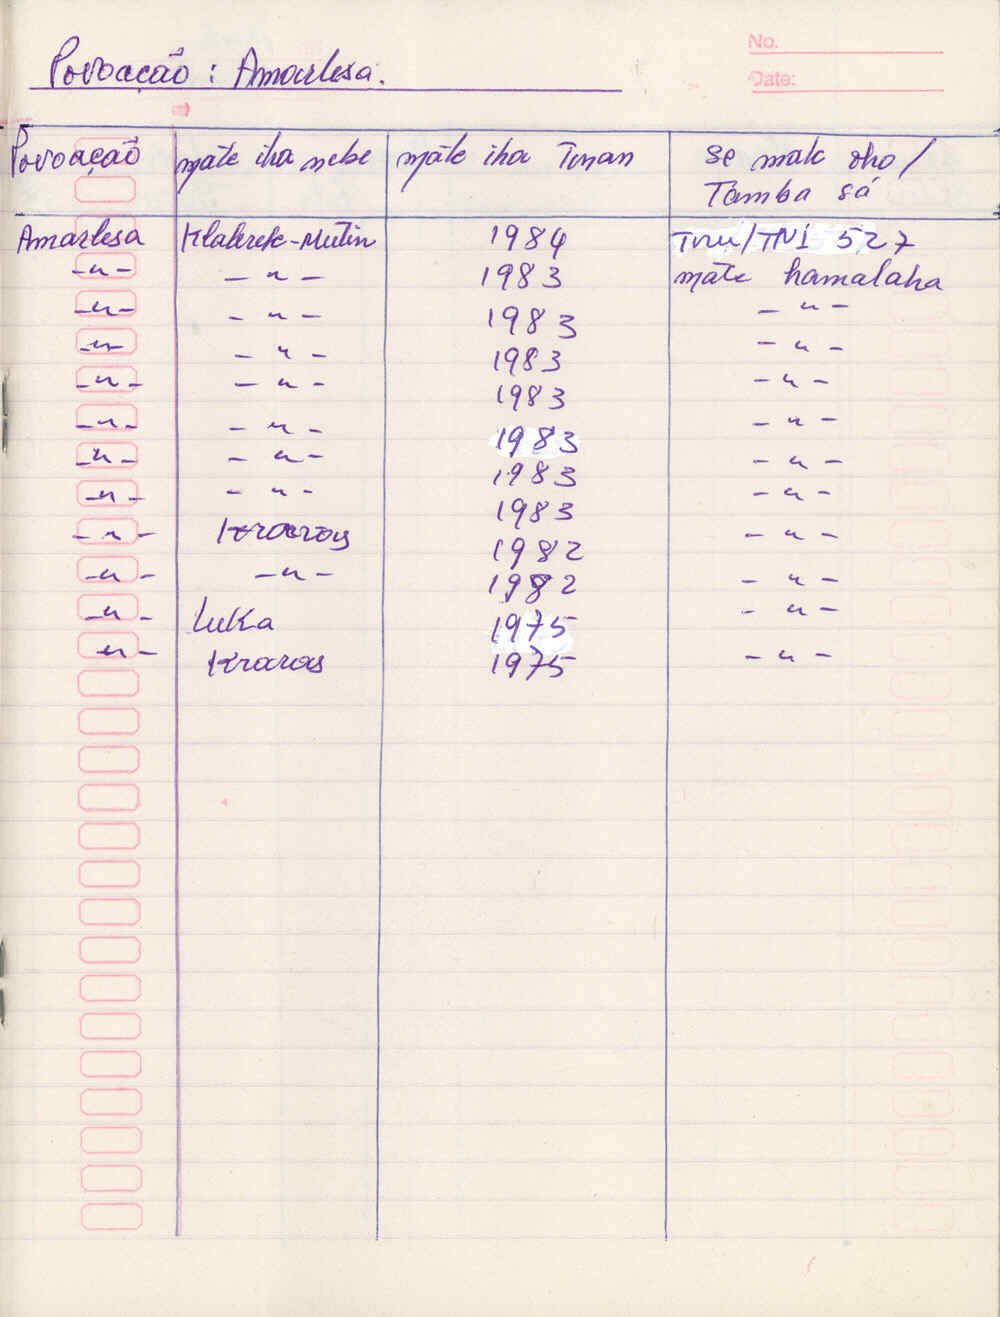 No.
Povoação : Amarlesa.
Date:
Povoação mate iha nebe mate iha Tinan se mak oho /
Tamba sá
Amarlesa Klalerek-Mutin 1984 Tiru/TNI 527
-"- -"- 1983 mate hamalaha
-"- -"- 1983 -"-
-"- -"- 1983 -"-
-"- -"- 1983 -"-
-"- -"- 1983 -"-
-"- -"- 1983 -"-
-"- -"- 1983 -"-
-"- Kraras 1982 -"-
-"- -"- 1982 -"-
-"- Luka 1975 -"-
-"- Kraras 1975 -"-